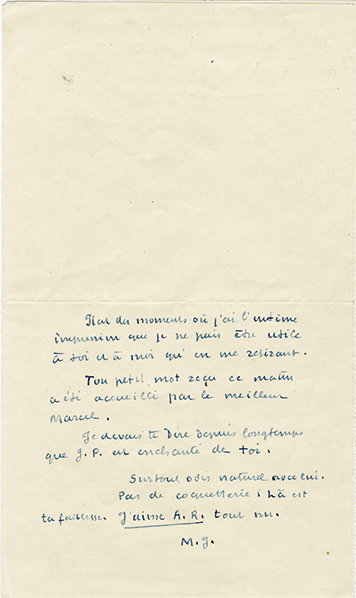 Il est des moments où j'ai l'intime
impression que je ne puis être utile
à toi et à moi qu'en me retirant.
Ton petit mot reçu ce matin
a été accueilli par le meilleur
Marcel.
Je devais te dire depuis longtemps
que J. P. est enchanté de toi.
Surtout sois naturel avec lui.
Pas de coquetterie : Là est
ta faiblesse. J'aime A. R. tout nu.
M. J.